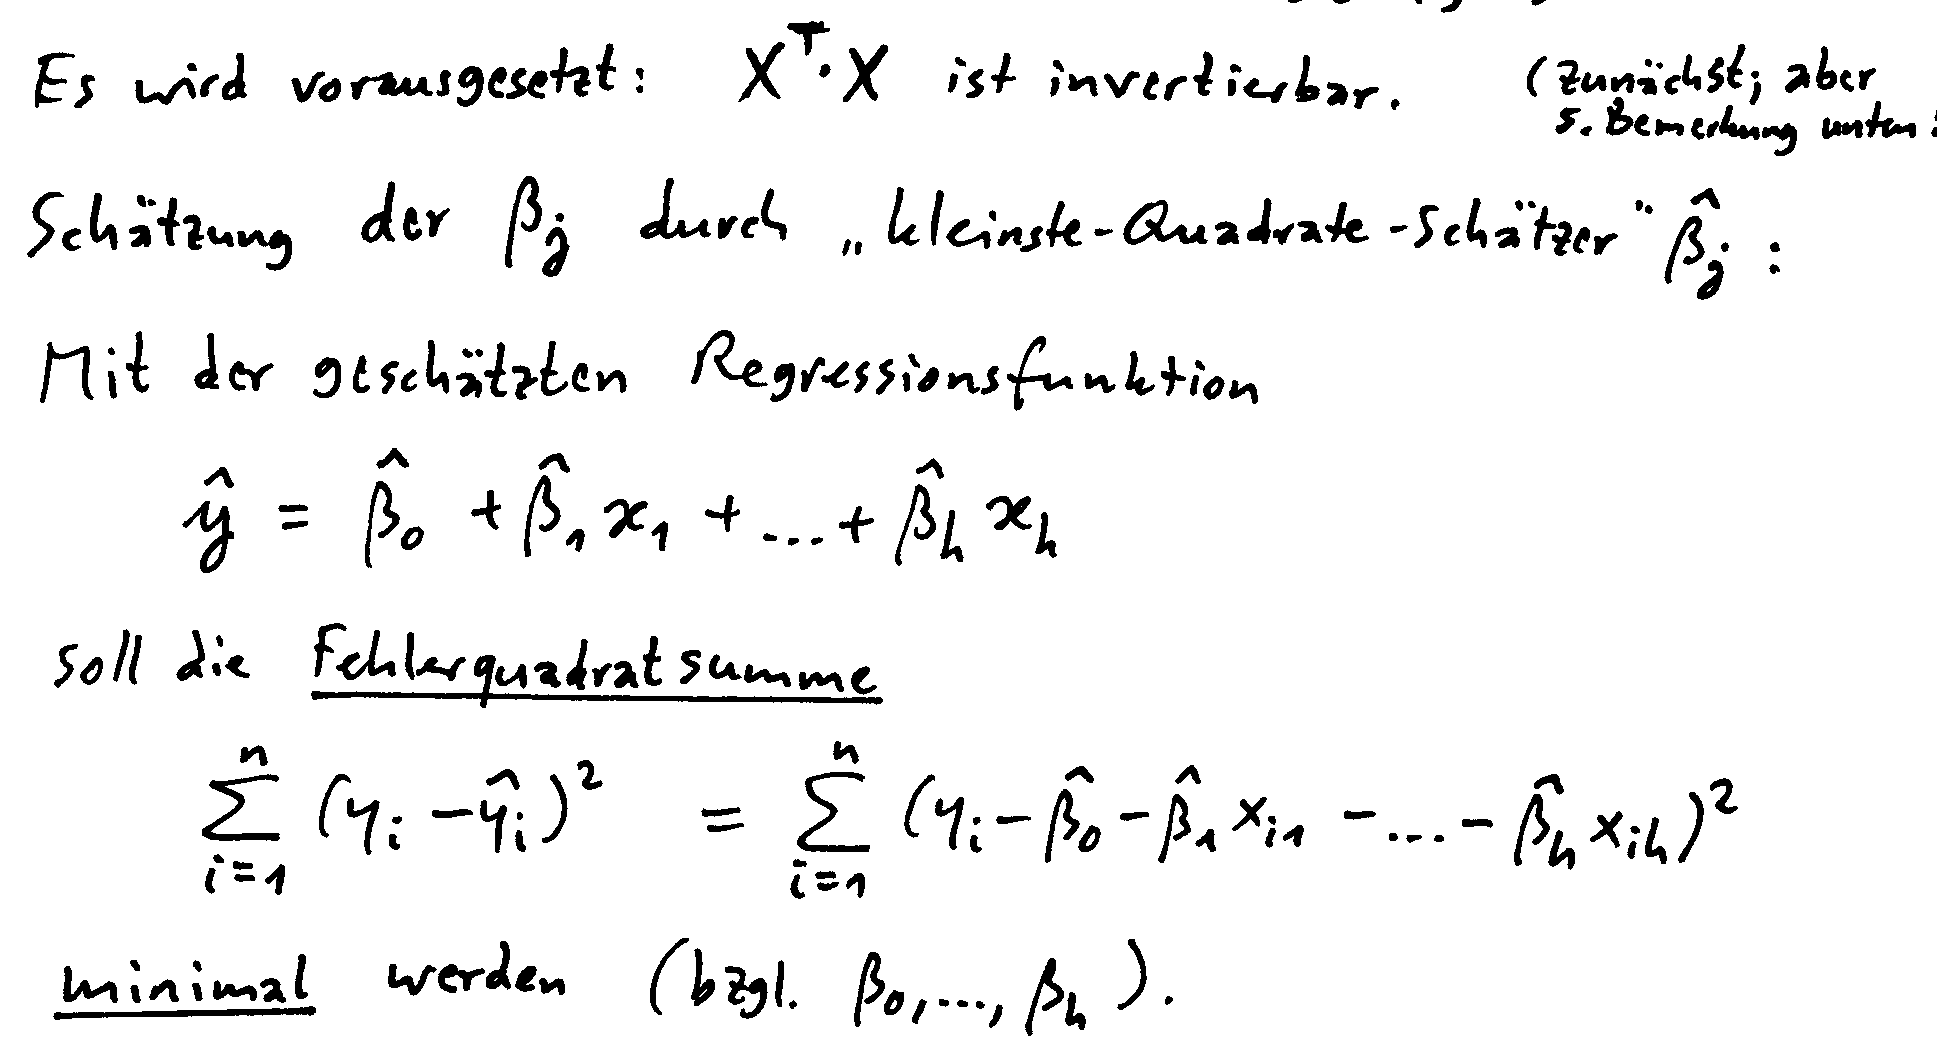 Es wird vorausgesetzt: Xᵀ·X ist invertierbar. (zunächst; aber
s. Bemerkung unten!
Schätzung der βⱼ durch „kleinste-Quadrate-Schätzer" β̂ⱼ :
Mit der geschätzten Regressionsfunktion
ŷ = β̂₀ + β̂₁ x₁ + ... + β̂ₕ xₕ
soll die Fehlerquadratsumme
∑ᵢ₌₁ⁿ (yᵢ - ŷᵢ)² = ∑ᵢ₌₁ⁿ (yᵢ - β̂₀ - β̂₁ xᵢ₁ - ... - β̂ₕ xᵢₕ)²
minimal werden (bzgl. β₀, ..., βₕ).